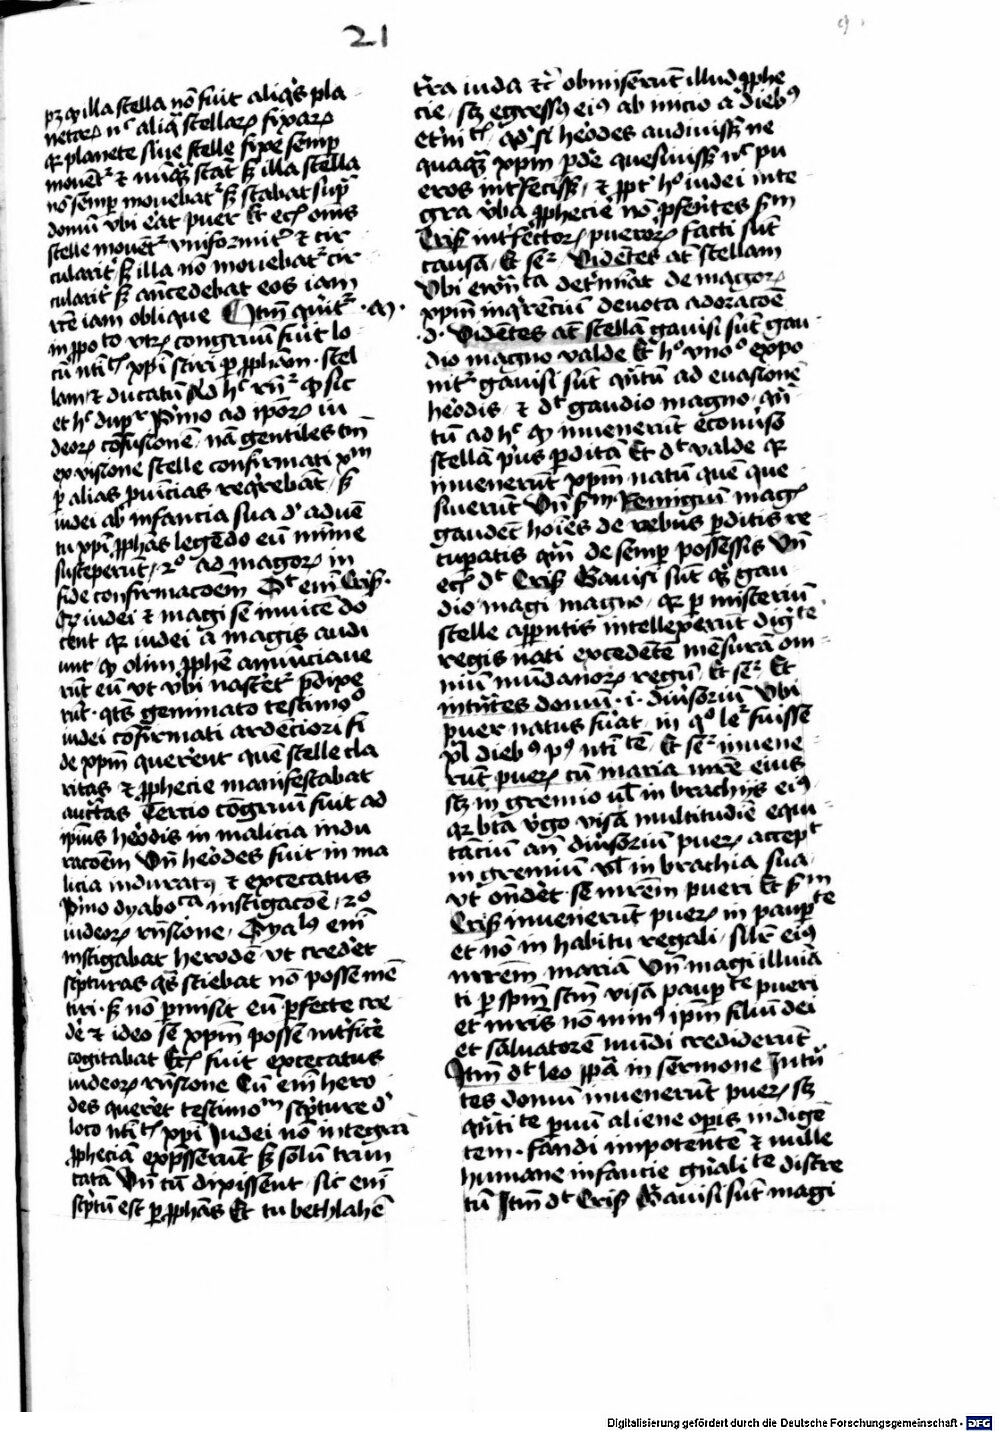 21
9
pꝫ ꝙ illa stella nō fuit aliq̄s pla
netaꝝ nᶜ aliq̄ stellaꝝ fixaꝝ
qꝛ planete siue stelle fixe semꝑ
mouēt᷑ ⁊ nūq̄ꝫ stāt sꝫ illa stella
nō semꝑ mouebat᷑ sꝫ stabat supͣ
domū vbi eͣat puer Et ecͥ om̄s
stelle mouēt᷑ vniformit᷑ ⁊ cir
culariṫ sꝫ illa nō mouebat᷑ cir
culariṫ sꝫ an̄cedebat eos iam
rc̄te iam oblique Itm̄ quīt᷑ ·aͫ·
in ꝓpoᵗᵒ vtꝝ congruū fuit lo
cū nītiᵗ xpī sciri ꝑ ꝓph̄am · stel
lam ⁊ ducatū Ad hᶜ rn̄᷑ ꝙ sic
et hᶜ dup᷑ Pͥmo ad ip̄oꝝ iu
deoꝝ cōfusionē nā gentiles tm̄
ex visione stelle confirmati xᵐ
ꝑ alias ꝓuīcias reqͥrebāt sꝫ
iudei ab infancia sua dͤ aduē
tu xpī ꝓph̄as legēdo eū mīnīe
susceperūt 2° ad magoꝝ in
fide confirmacōem Dᵗ em̄ Criſꝰ·
Qꝛ iudei ⁊ magi se inuicē do
cent qꝛ iudei a magis audi
unt ꝙ olim ꝓphē annūciaue
rūt eū vt vbi nascēt᷑ p̄dixe
rūt · qͣts geminato testimoᵒ
iudei cōfirmati ardēciori fi
de xpm̄ querͤent quē stelle cla
ritas ⁊ ꝓphecie manifestabat
auct̄as Tercio cōgruū fuit ad
ip̄ius heͬodis in malicia indu
racōem Vn̄ heͬodes fuit in ma
licia induratꝰ ⁊ excecatus
Pͥmo dyaboᶜᵃ instigacōe 2°
iudeoꝝ rn̄sione Dyalꝰ em̄
instigabat herodē vt credeͬt
scͥpturas qͣs sciebat nō posse mē
tiri sꝫ nō ꝑmisit eū ꝑfecte cre
deͬ ⁊ ideo se xpm̄ posse intͬficeͬ
cogitabat Ecͥ fuit excecatus
iudeoꝝ rn̄sione Cū em̄ hero
des querͤet testimoᵐ scͥpture dͤ
loco nītiᵗ xpī Iudei nō integrā
ꝓpheciā exp̄sserūt sꝫ solū trun
catā Vn̄ cū dixissent sic em̄
scͥptū est ꝑ ꝓph̄as Et tu bethlahē
tr̄ra iuda ⁊c̄ obmiserūt illud ꝓphe
cie sꝫ egressꝰ eiꝰ ab inicio a diebꝰ
et̄niᵗ qͥ si heͬodes audiuissꝫ ne
quaqͣꝫ xpm̄ ꝑdeͬ quesiuissꝫ nᶜ pu
eros intͬfecissꝫ ⁊ ꝓptͬ hᵒ iudei inte
gra vͬba ꝓphecie nō ꝓferͤtes sᵐ
Criſꝰ intͬfectoꝝ pueroꝝ facti sūt
causa Et seͬ Vidētes aūt stellam
Vbi ewn̄ᵗᵃ detͬmiāt de magoꝝ
xpm̄ inqͥrenciū deuota adoracoē
·d· Vidētes aūt stellā gauisi sūt gau
dio magno valde Et hᵒ vnoᵒ expo
nit᷑ gauisi sūt qͣntū ad euasionē
heͬodis ⁊ dᵗ gaudio magno qͣn
tū ad hᶜ ꝙ inuenerūt ecōuiso
stellā pͥus ꝑditā Et dᵗ valde qꝛ
inuenerūt xpm̄ natū quē que
siuerūt Vn̄ sᵐ Remigiū magͥ
gaudēt hoīes de rebus ꝑditis re
cuꝑatis qͣm de semꝑ possessis Vn̄
ecͥ dᵗ Criſꝰ Gauisi sūt qͣꝫ gau
dio magi magno qꝛ ꝑ misteriū
stelle apparentis intellexerūt digͥᵗᵉ
regis nati excedētē mēsurā om
niū mūdanoꝝ regū Et seͬ Et
intͣtes domū ·i· diuͬsoriū Vbi
puer natus fuͬat in qͦ leᷣ fuisse
Vl̄ diebꝰ pꝰ nītiᵗᵉ Et seͬ inuene
rūt pueꝝ cū maria mr̄e eius
sꝫ in gremio ul̄ in brachijs eiꝰ
qꝛ btā vͥgo visa multitudiē equi
taciū an̄ diuͬsoriū pueꝝ accepᵗ
in gremiū vl̄ in brachia sua
vt on̄deͬt se mr̄em pueri Et sᵐ
Criſꝰ inuenerūt pueꝝ in pauꝑᵗᵉ
et nō in habitu regali silͬ eiꝰ
mr̄em mariā Vn̄ magi illuīa
ti ꝑ spm̄ scm̄ visa pauꝑᵗᵉ pueri
et mr̄is nō minꝰ ip̄m filiū dei
et saluatorē mūdi crediderūt
Itm̄ dᵗ leo pp̄a in sermone Intͣn
tes domū inuenerūt pueꝝ sꝫ
qͣntiᵗᵉ ꝑuū aliene opͥs indigē
tem · fandi impotentē ⁊ nulle
humane infancie gnͬaliᵗᵉ discre
tū Itm̄ dᵗ Criſꝰ Gauisi sūt magi
Digitalisierung gefördert durch die Deutsche Forschungsgemeinschaft - DFG